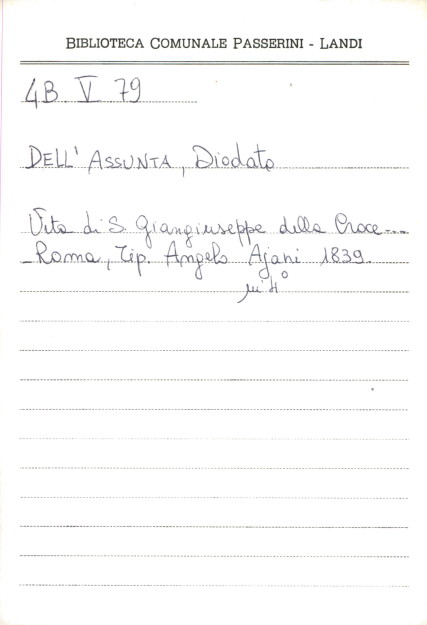 BIBLIOTECA COMUNALE PASSERINI - LANDI
4B. V. 79
DELL' ASSUNTA, Diodato
Vita di S. Giangiuseppe della Croce....
- Roma, Tip. Angelo Ajani 1839.
in 4°